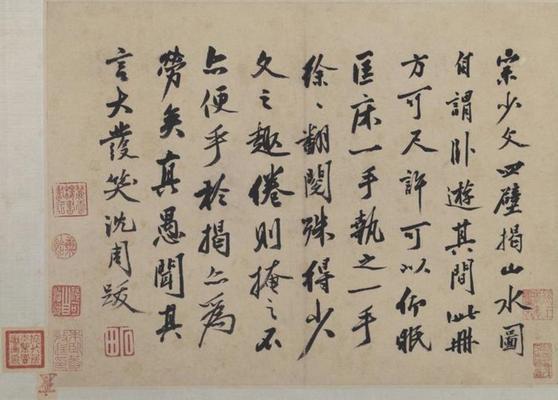 宗少文四壁揭山水圖
自謂卧遊其間此冊
方可尺許可以仰眠
匡床一手執之一手
徐〻翻閱殊得少
文之趣倦則掩之不
亦便乎於揭亦爲
勞矣真愚聞其
言大發笑沈周跋
石田